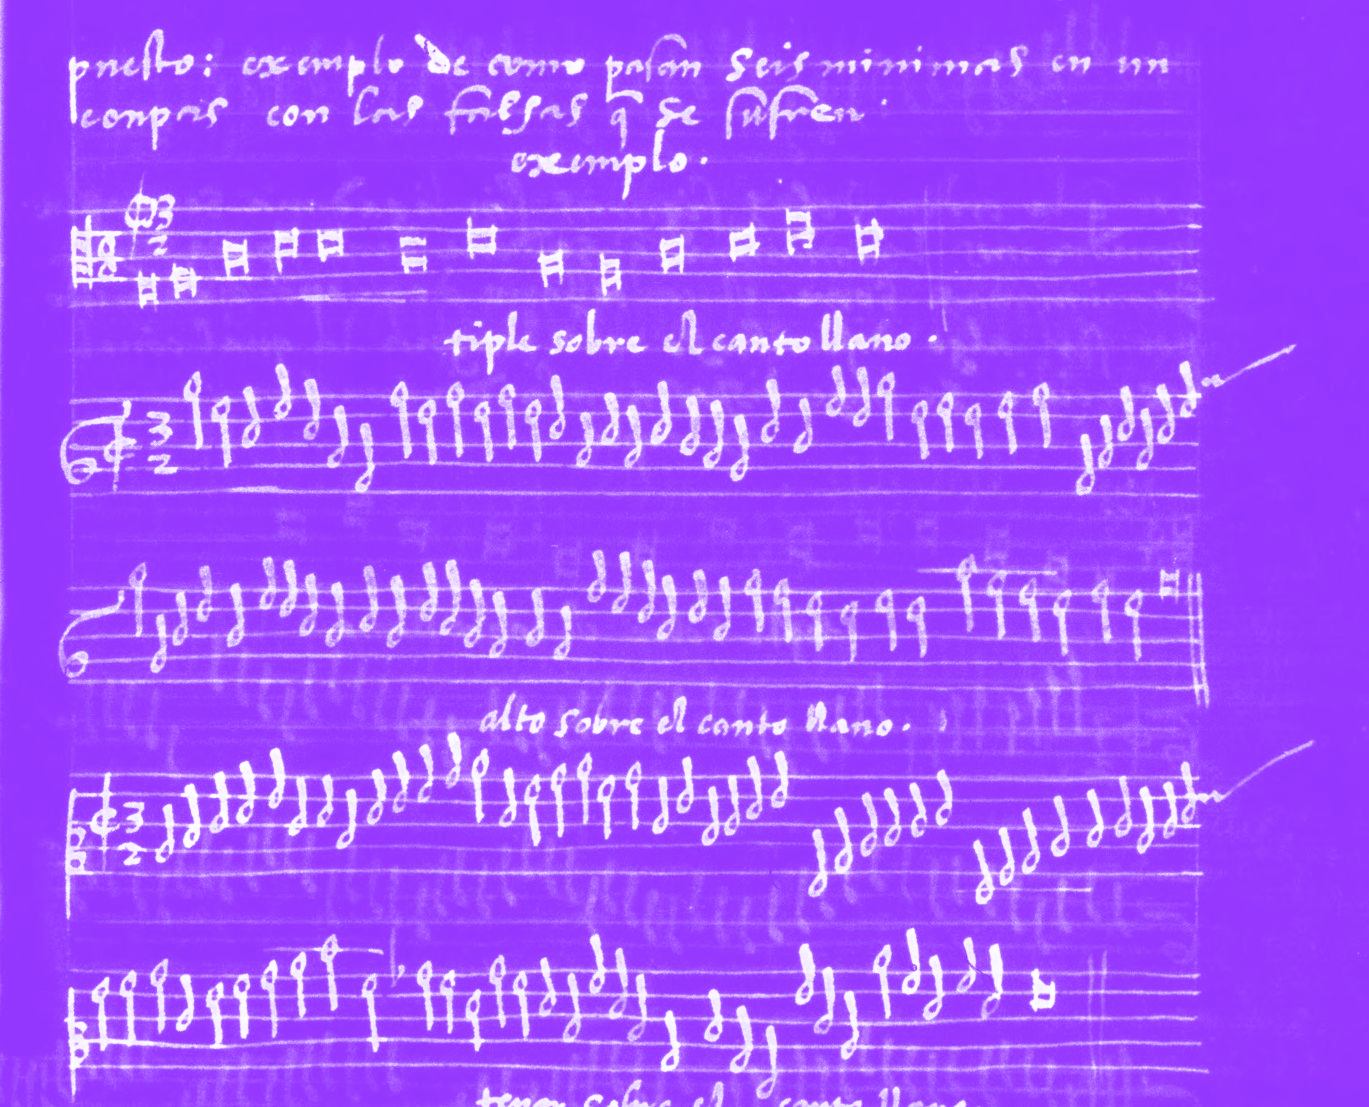 puesto: exemplo de como pasan seis minimas en un
conpas con las falsas q̄ se sufren
exemplo.
3
2
tiple sobre el canto llano.
3
2
alto sobre el canto llano.
3
2
tenor sobre el canto llano.